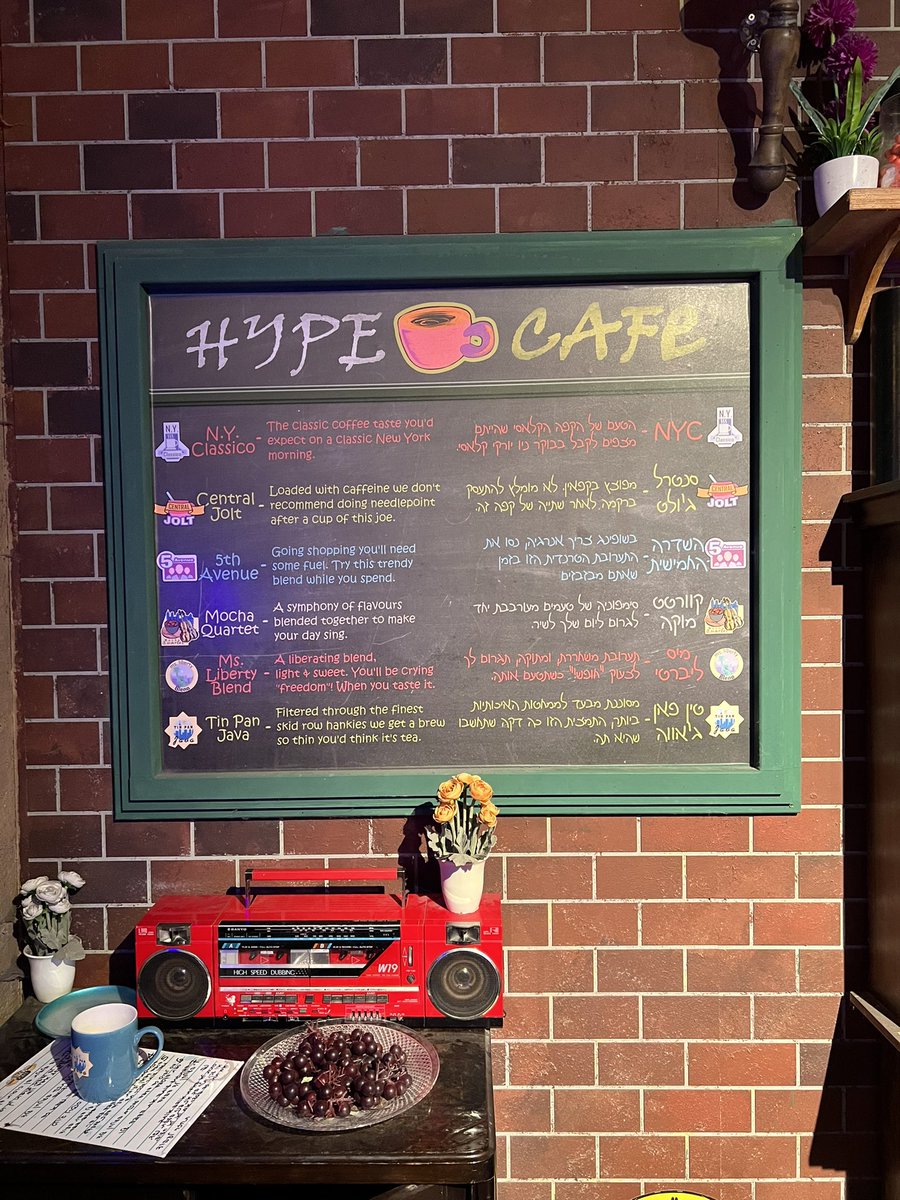 HYPE CAFE
N.Y. Classico - The classic coffee taste you'd
expect on a classic New York
morning.
Central Jolt - Loaded with caffeine we don't
recommend doing needlepoint
after a cup of this joe.
5th Avenue - Going shopping you'll need
some fuel. Try this trendy
blend while you spend.
Mocha Quartet - A symphony of flavours
blended together to make
your day sing.
Ms. Liberty Blend - A liberating blend,
light & sweet. You'll be crying
"freedom"! When you taste it.
Tin Pan Java - Filtered through the finest
skid row hankies we get a brew
so thin you'd think it's tea.
NYC - הטעם של הקפה הקלאסי שהייתם
מצפים לקבל בבוקר ניו יורקי קלאסי.
סנטרל ג'ולט - מפוצץ בקפאין. לא מומלץ להתעסק
ברקמה לאחר שתיה של קפה זה.
השדרה החמישית - בשופינג צריך אנרגיה, נסו את
התערובת הטרנדית הזו בזמן
שאתם מבזבזים
קוורטט מוקה - סימפוניה של טעמים מעורבבת יחד
לגרום ליום שלך לשיר.
מיס ליברטי - תערובת משחררת, ומתוקה, תגרום לך
לצעוק "חופשי" כשתטעם אותה.
טין פאן ג'אווה - מסוננת מבעד לממחטות האיכותיות
ביותר, התמצית הזו כה דקה שתחשבו
שהיא תה.
CENTRAL
JOLT
CENTRAL
JOLT
5 Avenue
5 Avenue
TIN PAN
SANYO
HIGH SPEED DUBBING
W19